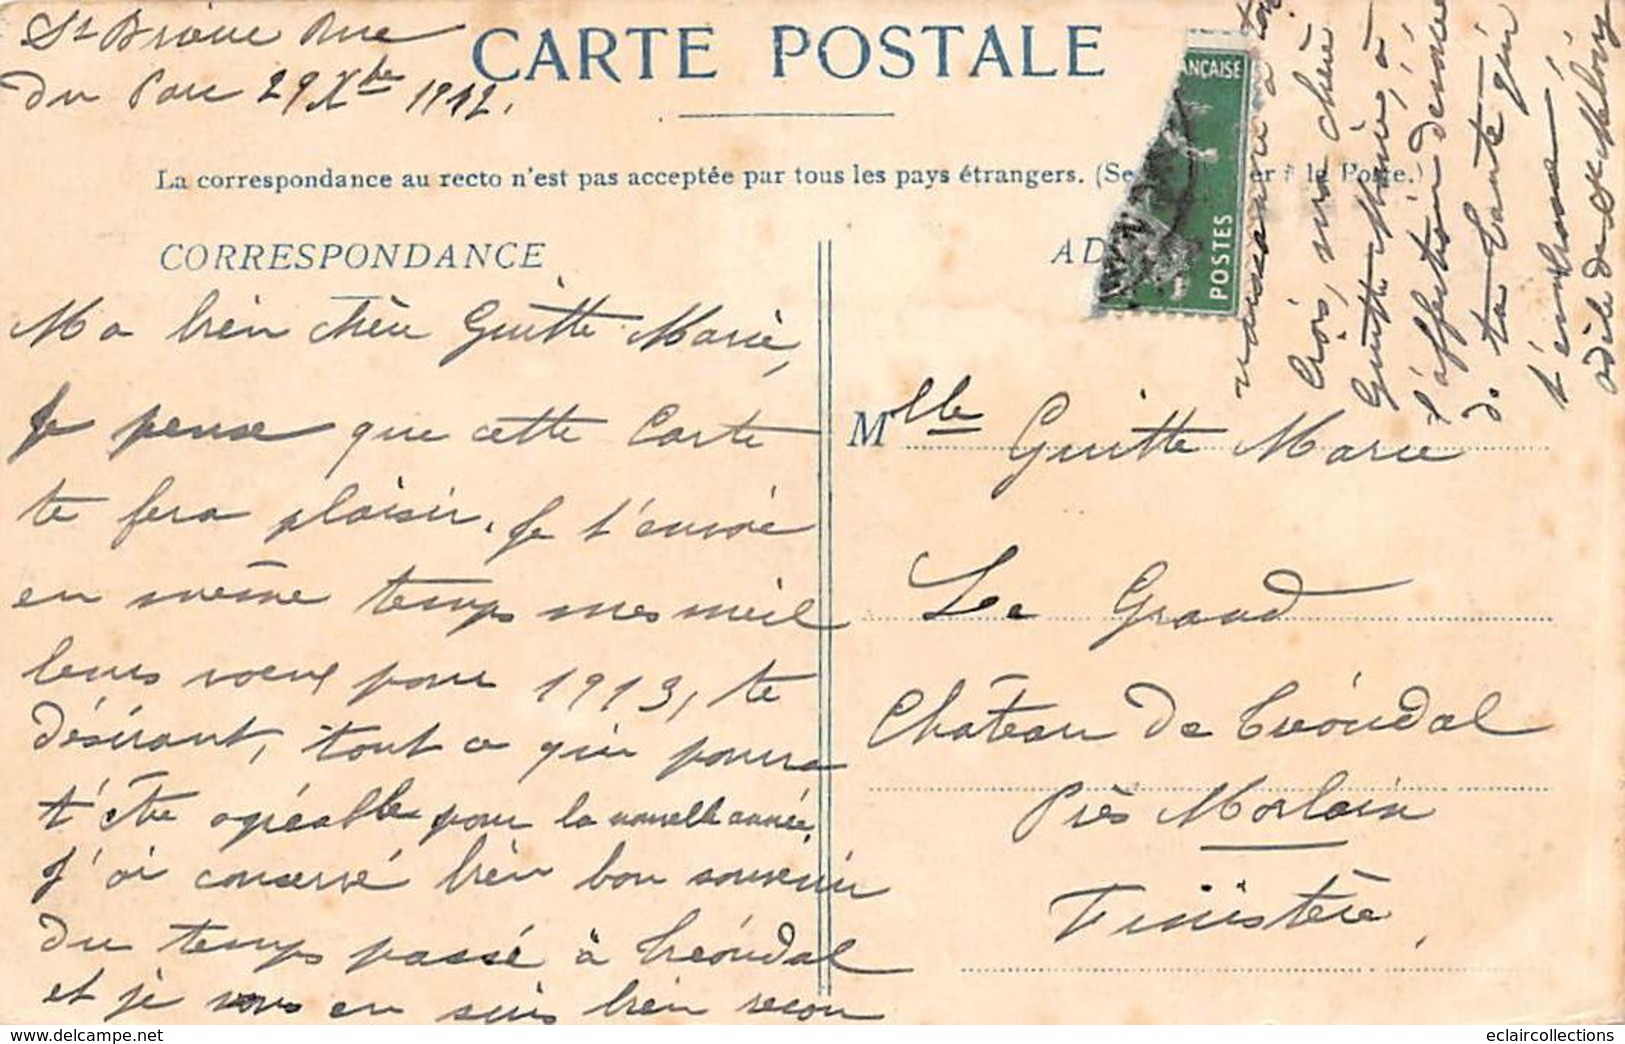 St Brieuc Rue
du Parc 29 Xbre 1912.
CARTE POSTALE
La correspondance au recto n'est pas acceptée par tous les pays étrangers. (Se er à la Poste.)
CORRESPONDANCE
AD
ANÇAISE
POSTES
Ma bien chère Guitte Marie,
Je pense que cette Carte
te fera plaisir. Je t'envoie
en même temps mes meil
leurs voeux pour 1913, te
désirant, tout ce qui pourra
t'être agréable pour la nouvelle année.
J'ai conservé bien bon souvenir
du temps passé à Tréoudal
et je vous en suis bien recon
naissante à toi
Crois, ma chère
Guitte Marie, à
l'affection dévouée
de ta tante qui
t'embrasse
Adèle de
Mlle Guitte Marie
Le Grand
Château de Tréoudal
Près Morlaix
Finistère
eclaircollections